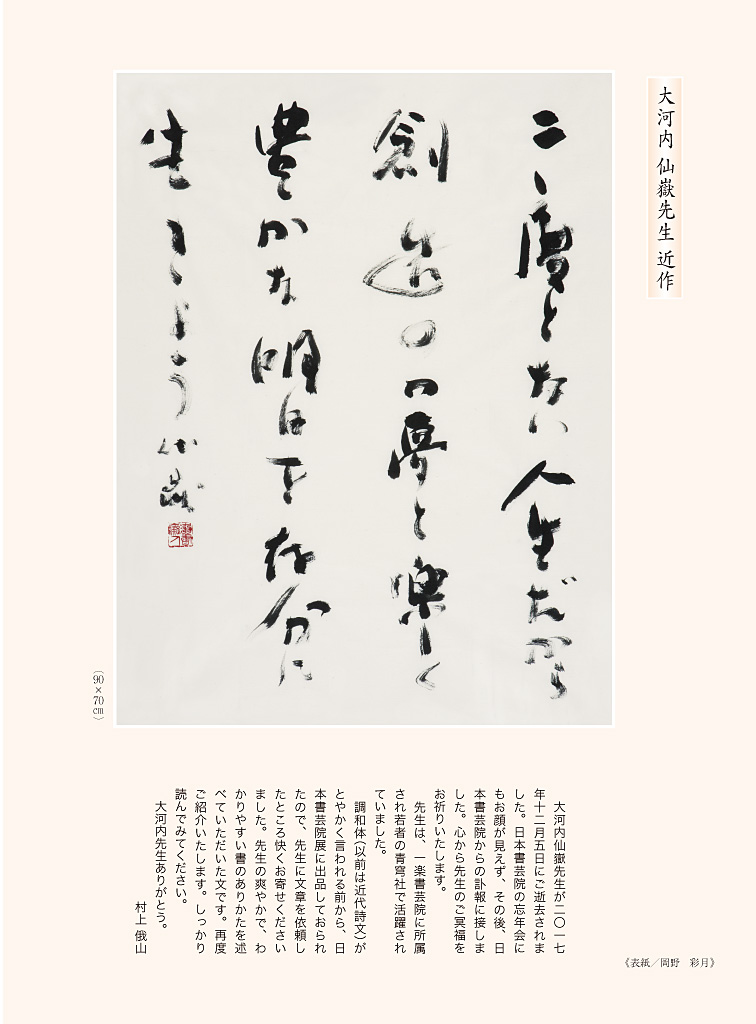 大河内 仙嶽先生 近作
二度とない人生だから
創造の日々夢と楽しく
豊かな明日を存分に
生きよう 仙嶽
（90×70㎝）
大河内仙嶽先生が二〇一七
年十二月五日にご逝去されま
した。日本書芸院の忘年会に
もお顔が見えず、その後、日
本書芸院からの訃報に接しま
した。心から先生のご冥福を
お祈りいたします。
先生は、一楽書芸院に所属
され若者の青穹社で活躍され
ていました。
調和体（以前は近代詩文）が
とやかく言われる前から、日
本書芸院展に出品しておられ
たので、先生に文章を依頼し
たところ快くお寄せください
ました。先生の爽やかで、わ
かりやすい書のありかたを述
べていただいた文です。再度
ご紹介いたします。しっかり
読んでみてください。
大河内先生ありがとう。
村上 俄山
《表紙／岡野 彩月》